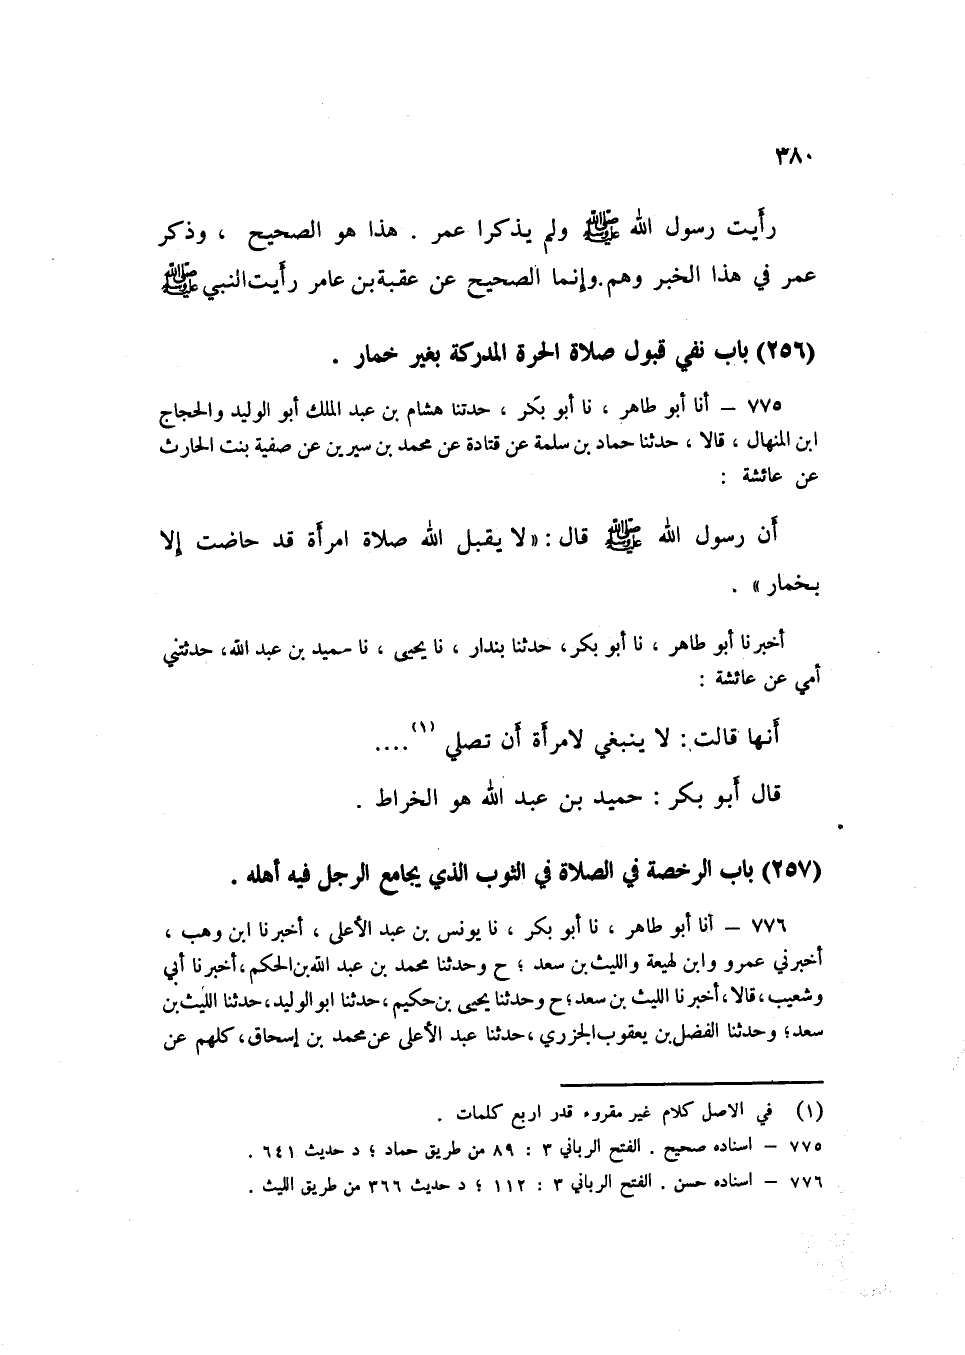 ٣٨٠
رأيت رسول الله ﷺ ولم يذكرا عمر . هذا هو الصحيح ، وذكر
عمر في هذا الخبر وهم.وإنما الصحيح عن عقبة بن عامر رأيت النبي ﷺ
(٢٥٦) باب نفي قبول صلاة الحرة المدركة بغير خمار .
٧٧٥ – أنا أبو طاهر ، نا أبو بكر ، حدتنا هشام بن عبد الملك أبو الوليد والحجاج
ابن المنهال ، قالا ، حدثنا حماد بن سلمة عن قتادة عن محمد بن سيرين عن صفية بنت الحارث
عن عائشة :
أن رسول الله ﷺ قال : «لا يقبل الله صلاة امرأة قد حاضت إلا
بخمار» .
أخبرنا أبو طاهر ، نا أبو بكر، حدثنا بندار ، نا يحيى ، نا حميد بن عبد الله، حدثتني
أمي عن عائشة :
أنها قالت : لا ينبغي لامرأة أن تصلي (١)....
قال أبو بكر : حميد بن عبد الله هو الخراط .
(٢٥٧) باب الرخصة في الصلاة في الثوب الذي يجامع الرجل فيه أهله .
٧٧٦ – أنا أبو طاهر ، نا أبو بكر ، نا يونس بن عبد الأعلى ، أخبرنا ابن وهب ،
أخبرني عمرو وابن لهيعة والليث بن سعد ؛ ح وحدثنا محمد بن عبد الله بن الحكم، أخبرنا أبي
وشعيب، قالا، أخبرنا الليث بن سعد؛ ح وحدثنا يحيى بن حكيم، حدثنا ابو الوليد، حدثنا الليث بن
سعد؛ وحدثنا الفضل بن يعقوب الجزري ، حدثنا عبد الأعلى عن محمد بن إسحاق، كلهم عن
(١) في الاصل كلام غير مقروء قدر اربع كلمات .
٧٧٥ – اسناده صحيح . الفتح الرباني ٣ : ٨٩ من طريق حماد ؛ د حديث ٦٤١ .
٧٧٦ – اسناده حسن . الفتح الرباني ٣ : ١١٢ ؛ د حديث ٣٦٦ من طريق الليث .